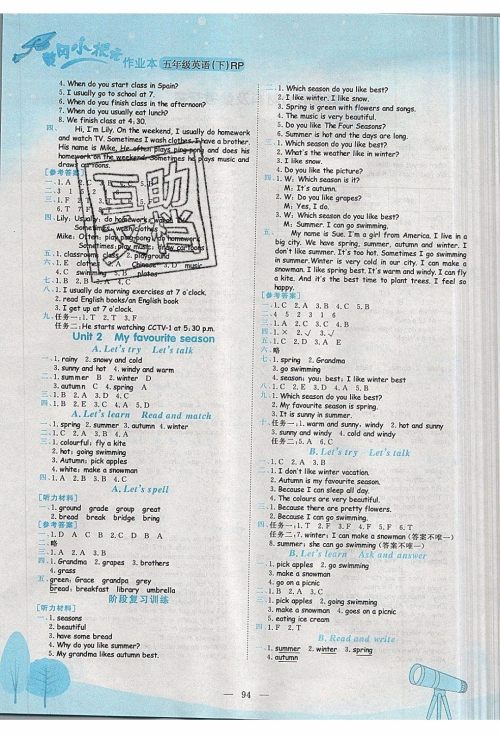 黄冈小状元作业本 五年级英语(下)RP
4. When do you start class in Spain?
5. I usually go to school at 7.
6. When do you finish class in the afternoon?
7. When do you usually eat lunch?
8. We finish class at 4:30.
四. Hi, I'm Lily. On the weekend, I usually do homework
and watch TV. Sometimes I wash clothes. I have a brother.
His name is Mike. He often plays ping-pong and does his
homework on the weekend. Sometimes he plays music and
draws cartoons.
[参考答案]
一. 1. A 2. C
二. 3 1 5 2
三. 1. F 2. T
6. T 7. F
四. Lily: Usually: do homework
Sometimes: wash clothes
Mike: Often: play ping-pong, do homework
Sometimes: play music, draw cartoons
五. 1. classroom class 2. playground
六. 1. E clothes A Chinese 3. D music
4. C swimming plates
七. 1. B 2. B
八. 1. I usually do morning exercises at 7 o'clock.
2. read English books/an English book
3. I get up at 7 o'clock.
九. 任务一: 1. T 2. T 3. F
任务二: He starts watching CCTV-1 at 5:30 pm.
Unit 2 My favourite season
A. Let's try Let's talk
一. 1. rainy 2. snowy and cold
3. sunny and hot 4. windy and warm
二. 1. summer B 2. winter D
3. autumn C 4. spring A
三. 1. B 2. A 3. D 4. C
四. 1. B 2. E 3. C 4. A 5. D
A. Let's learn Read and match
一. 1. spring 2. summer 3. autumn 4. winter
二. 1. C 2. A 3. B 4. A
三. 1. colourful; fly a kite
2. hot; going swimming
3. Autumn; pick apples
4. white; make a snowman
四. 1. A 2. B 3. B 4. C
A. Let's spell
[听力材料]
一. 1. ground grade group great
2. bread break bridge bring
[参考答案]
一. 1. D A C B 2. C D B A
二. 略
三. 1. A 2. A 3. B
四. 1. Grandma 2. grapes 3. brothers
4. grass
五. green: Grace grandpa grey
bread: breakfast library umbrella
阶段复习训练
[听力材料]
一. 1. seasons
2. beautiful
3. have some bread
4. Why do you like summer?
5. My grandma likes autumn best.
二. 1. Which season do you like best?
2. I like winter. I like snow.
3. Spring is green with flowers and songs.
4. The music is very beautiful.
5. Do you like The Four Seasons?
6. Summer is hot and the days are long.
三. 1. Which season do you like best?
2. What's the weather like in winter?
3. I like snow.
4. Do you like the picture?
四. 1. W: Which season is it?
M: It's autumn.
2. W: Do you like grapes?
M: Yes, I do.
3. W: Which season do you like best?
M: Summer. I can go swimming.
五. My name is Sue. I'm a girl from America. I live in a
big city. We have spring, summer, autumn and winter. I
don't like summer. It's too hot. Sometimes I go swimming
in summer. Winter is very cold in our city. I can make a
snowman. I like spring best. It's warm and windy. I can fly
a kite. And it's the best time to plant trees. I feel so
happy.
[参考答案]
一. 1. C 2. A 3. B 4. C 5. B
二. 4 5 2 3 1 6
三. 1. A 2. C 3. C 4. B
四. 1. × 2. √ 3. √
五. 1. C 2. D 3. A 4. E
六. 略
七. 1. spring 2. Grandma
3. go swimming
4. season; you; best; I like winter best
八. 1. C 2. E 3. D 4. A 5. B
九. 1. Which season do you like best?
2. My favourite season is spring.
3. It is sunny in summer.
十. 任务一: 1. warm and sunny, windy 2. hot and sunny
3. sunny and windy 4. cold and windy
任务二: 5. A 6. C
B. Let's try Let's talk
一. 1. C 2. A 3. B
二. 1. I don't like winter vacation.
2. Autumn is my favourite season.
3. Because I can sleep all day.
4. The colours are very beautiful.
三. 1. Because there are pretty flowers.
2. Because I can go swimming.
四. 任务一: 1. T 2. F 3. F 4. F 5. F 6. T
任务二: 7. winter; I can make a snowman (答案不唯一)
8. summer; she can go swimming (答案不唯一)
B. Let's learn Ask and answer
一. 1. pick apples 2. go swimming
3. make a snowman
4. go on a picnic
二. 1. B 2. A 3. C
三. 1. pick apples 2. going swimming
3. make a snowman 4. goes on a picnic
5. eating ice cream
四. 1. F 2. T
B. Read and write
一. 1. summer 2. winter 3. spring
4. autumn
— 94 —